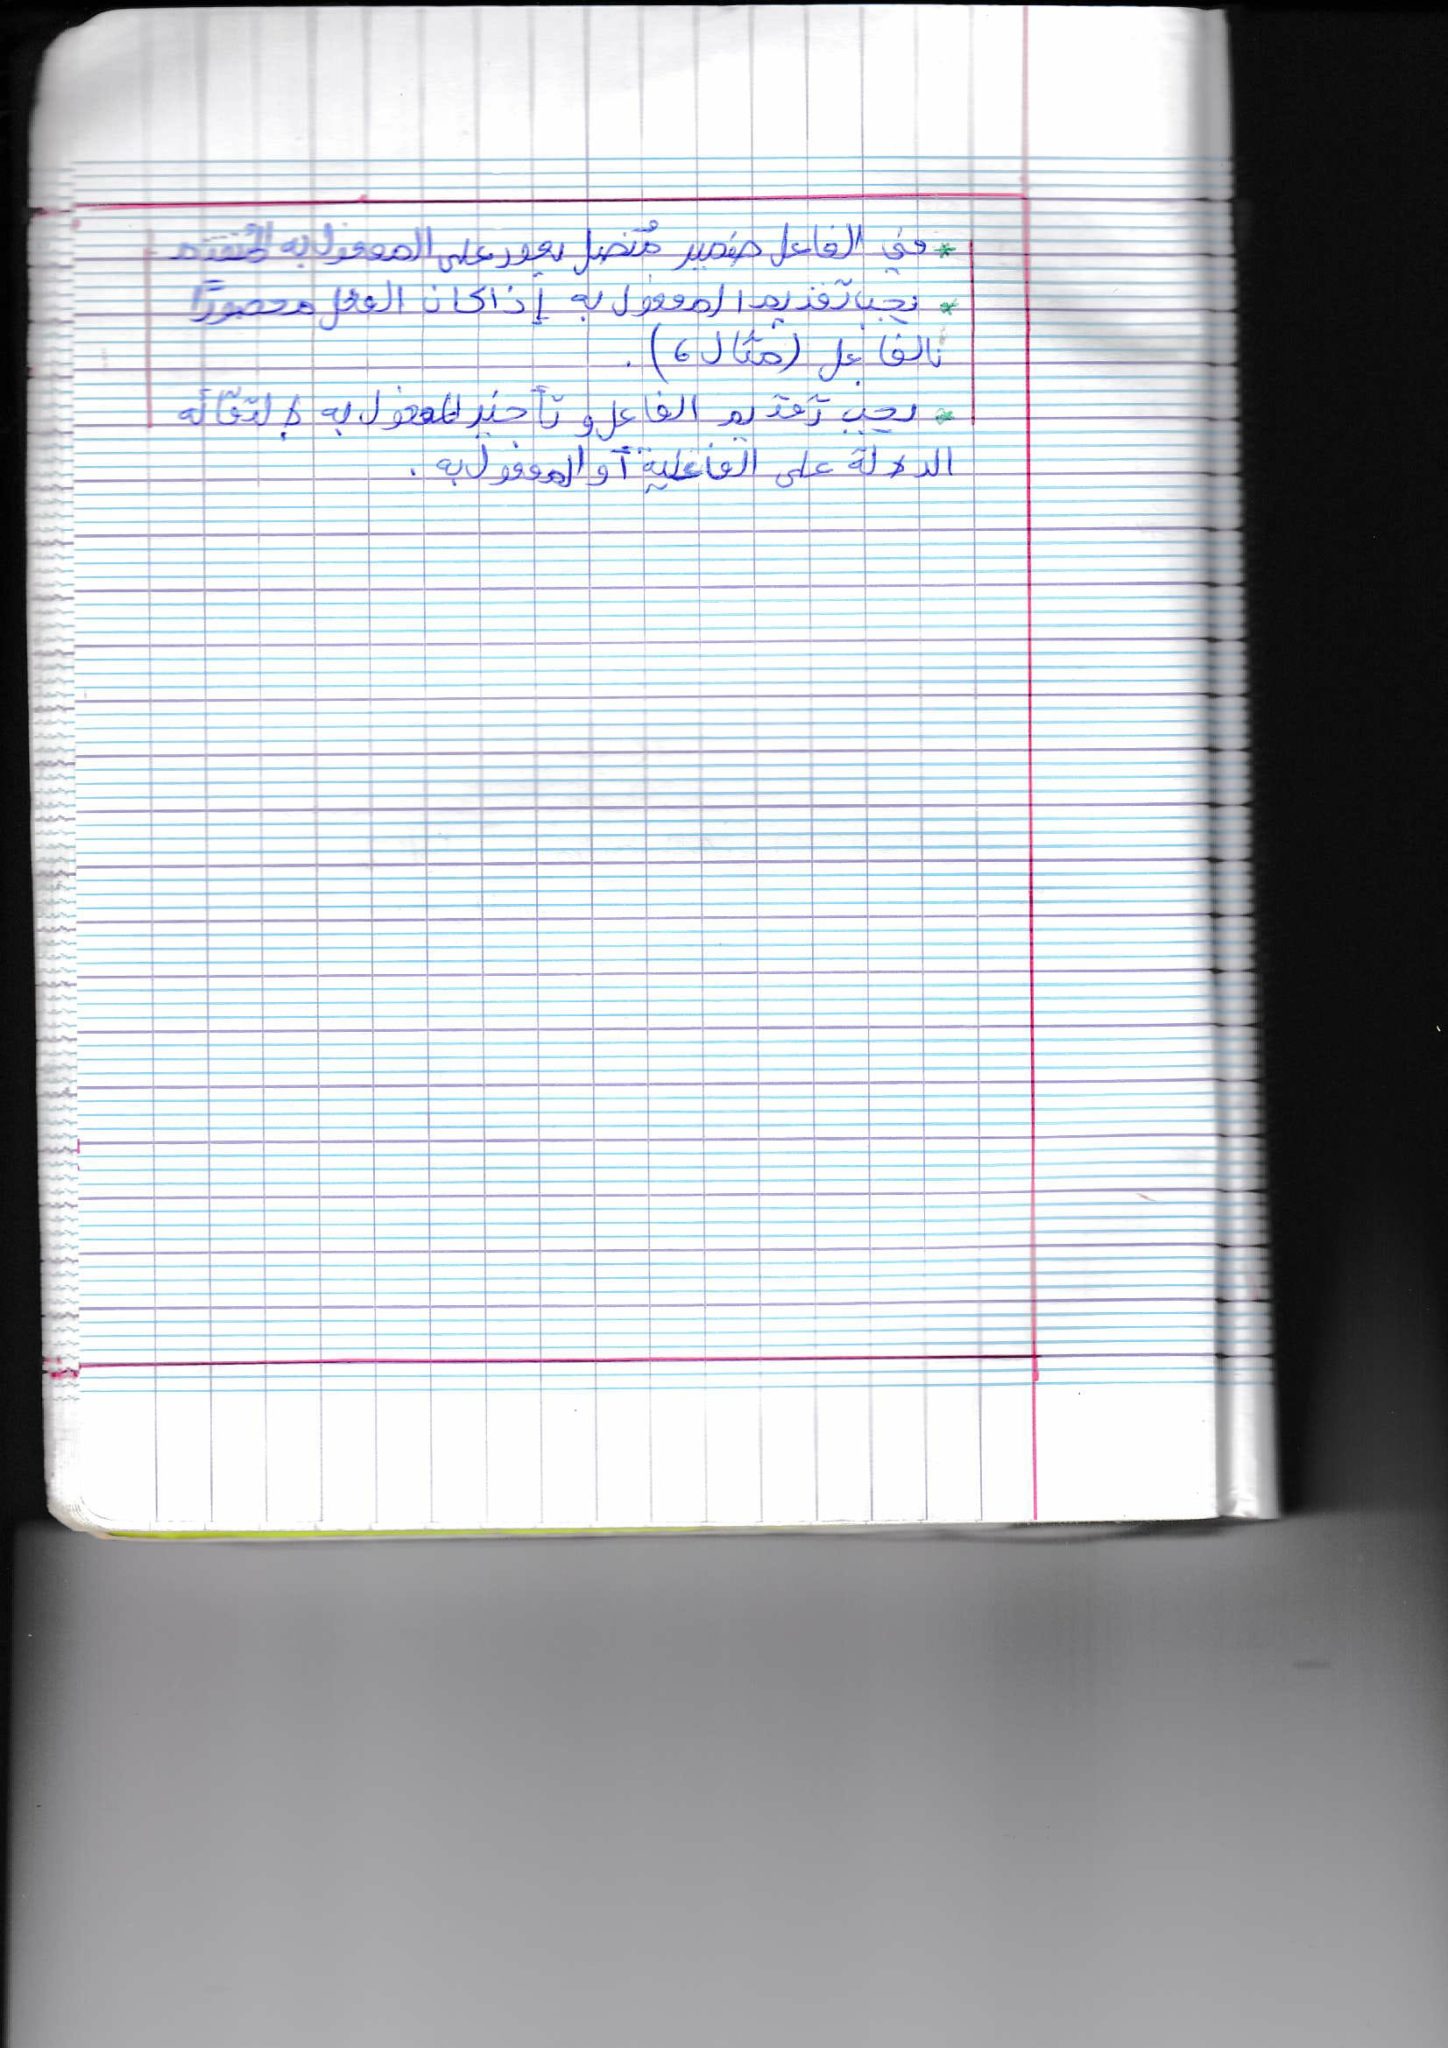 * في الفاعل ضمير مُتصل يعود على المفعول به المتقدم
* يجب تقديم المفعول به إذا كان الفعل محصورًا
بالفاعل (مثال 6).
* يجب تقديم الفاعل و تأخير المفعول به
الدلالة على الفاعلية أو المفعول به.